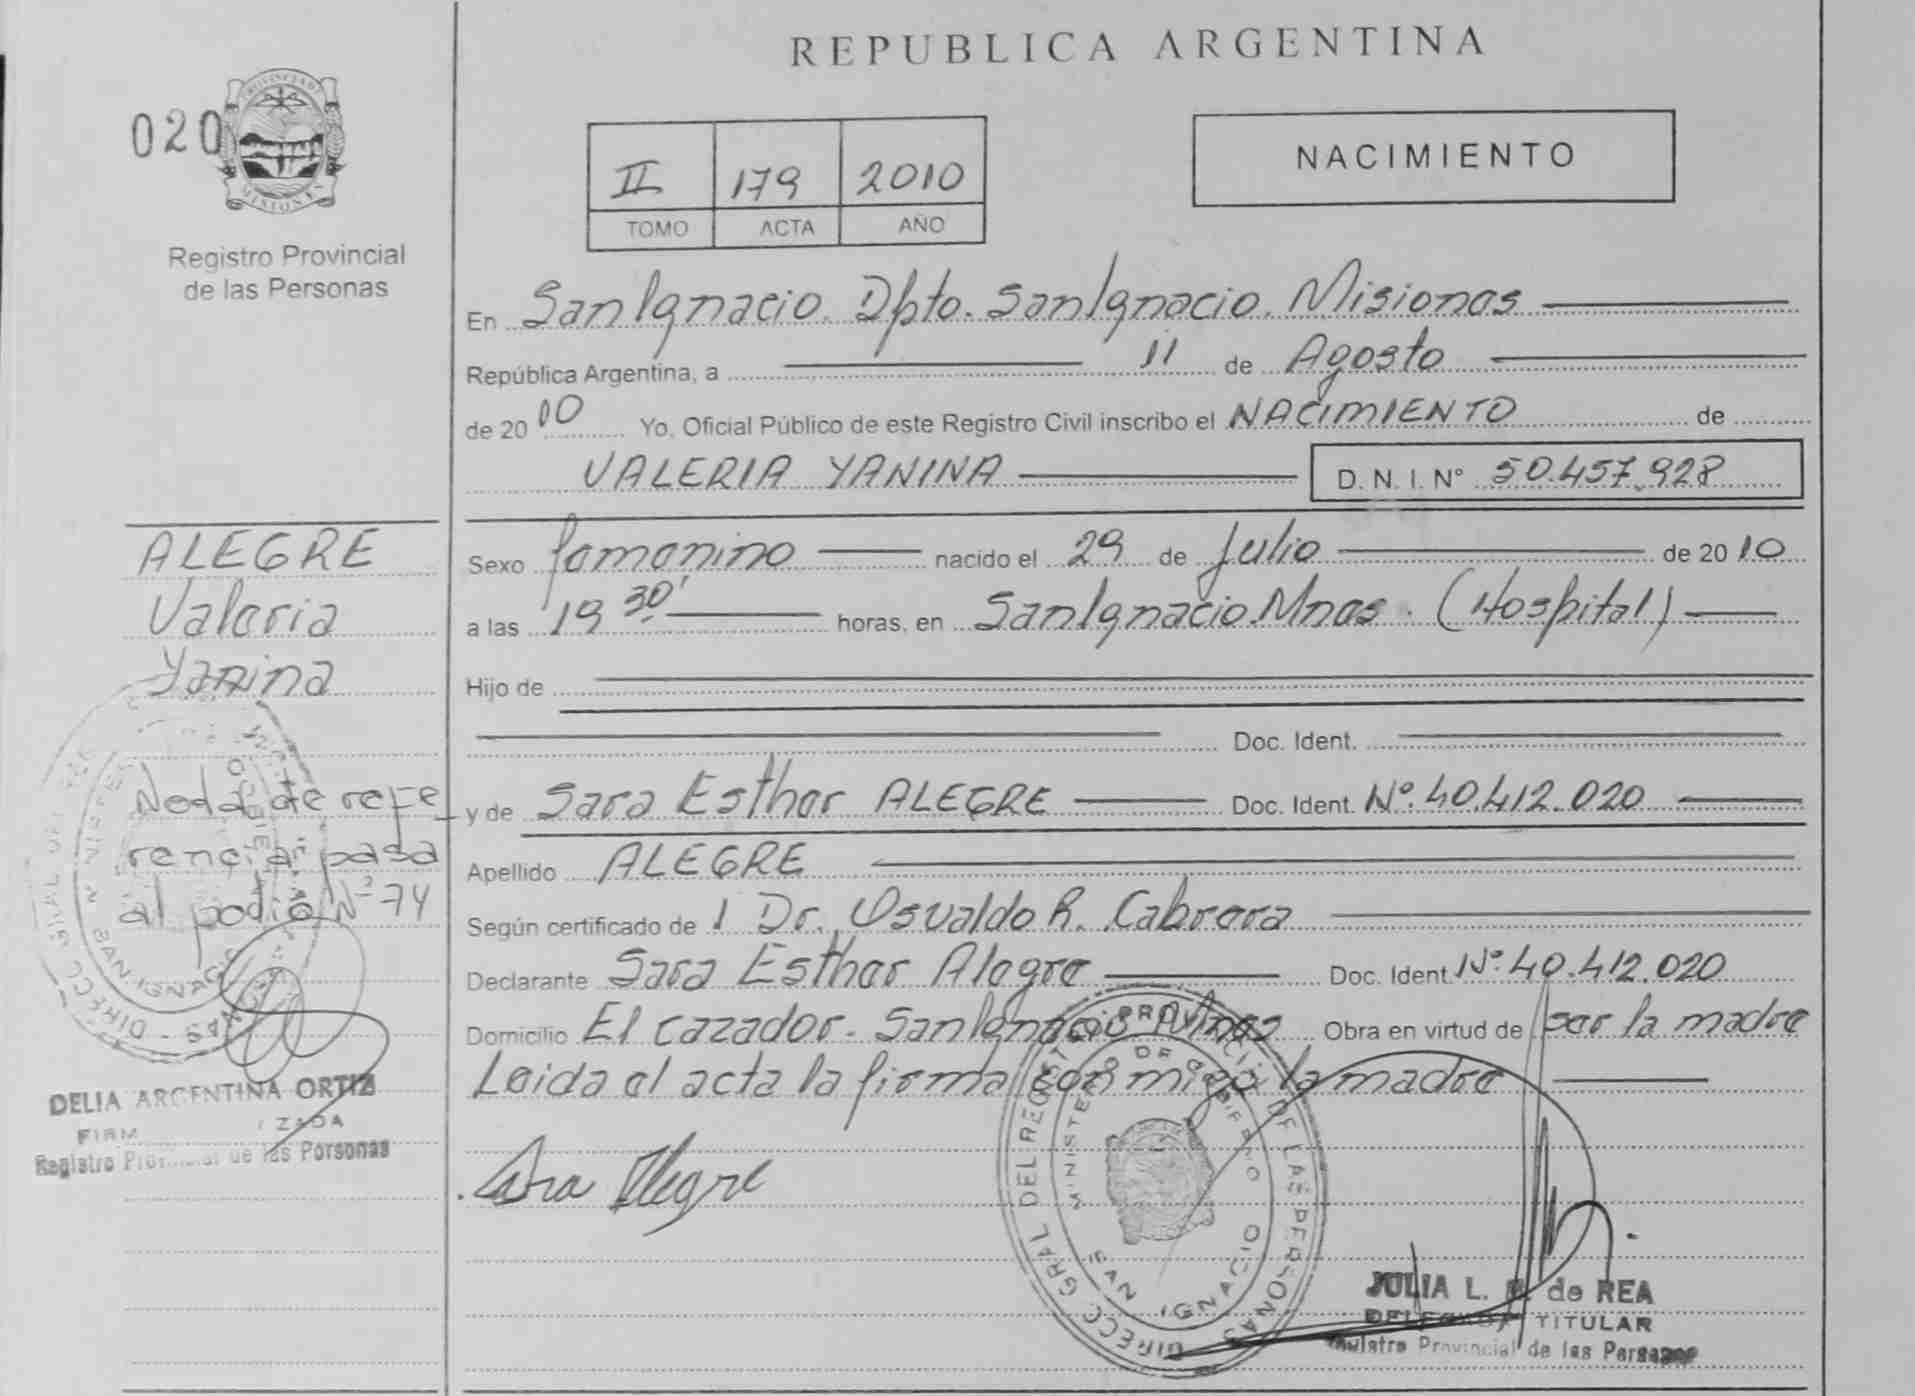 REPUBLICA ARGENTINA
020
Registro Provincial
de las Personas
II 179 2010
TOMO ACTA AÑO
NACIMIENTO
En San Ignacio. Dpto. San Ignacio. Misiones
República Argentina, a 11 de Agosto
de 20 10 Yo, Oficial Público de este Registro Civil inscribo el NACIMIENTO de
VALERIA YANINA D. N. I. N° 50.457.928
Sexo femenino nacido el 29 de Julio de 20 10
a las 19 30' horas, en San Ignacio Mnes. (Hospital)
Hijo de
Doc. Ident.
y de Sara Esther ALEGRE Doc. Ident. Nº. 40.412.020
Apellido ALEGRE
Según certificado de 1 Dr. Osvaldo R. Cabrera
Declarante Sara Esther Alegre Doc. Ident. Nº 40.412.020
Domicilio El cazador - San Ignacio Mnes Obra en virtud de ser la madre
Leida el acta la firma conmigo la madre
Sara Alegre
ALEGRE
Valeria
Yanina
Nota de refe
rencia: pasa
al podio Nº 74
DELIA ARGENTINA ORTIZ
Registro Provincial de las Personas
MINISTERIO DE GOBIERNO
SAN IGNACIO
JULIA L. de REA
TITULAR
Registro Provincial de las Personas